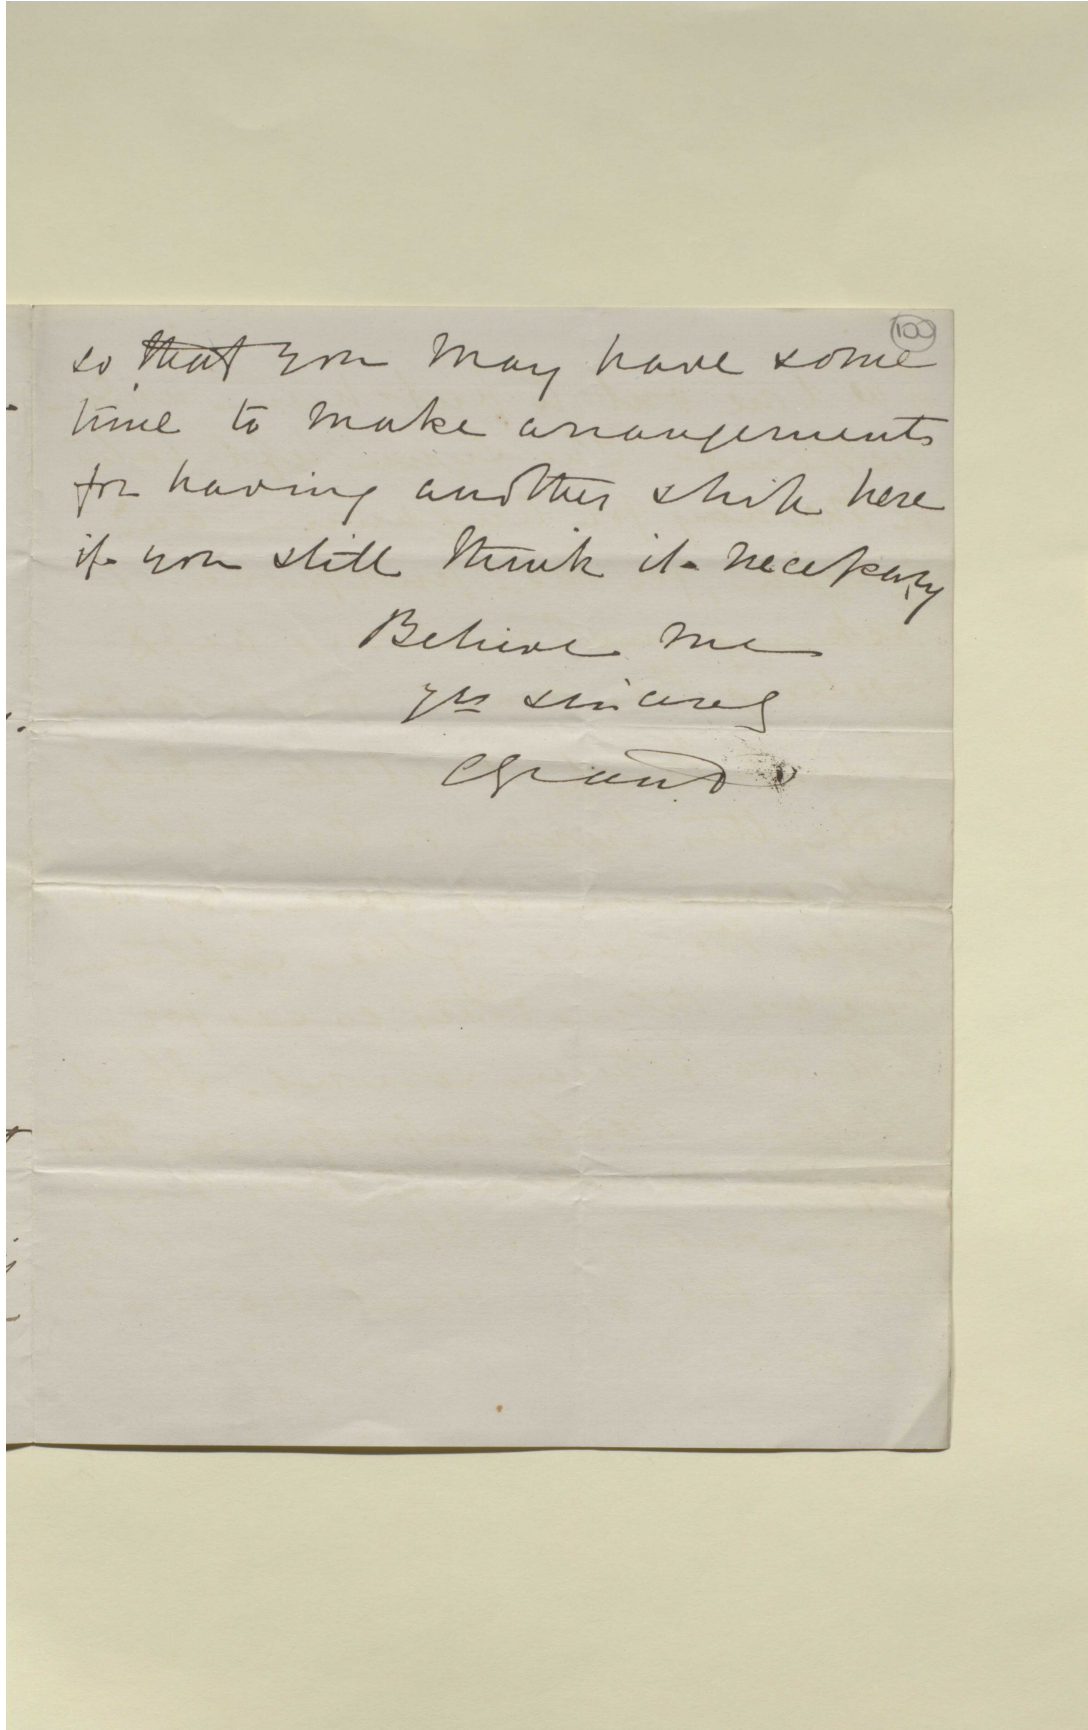 100
so that you may have some
time to make arrangements
for having another ship here
if you still think it necessary
Believe me
yrs sincerely
CGrant